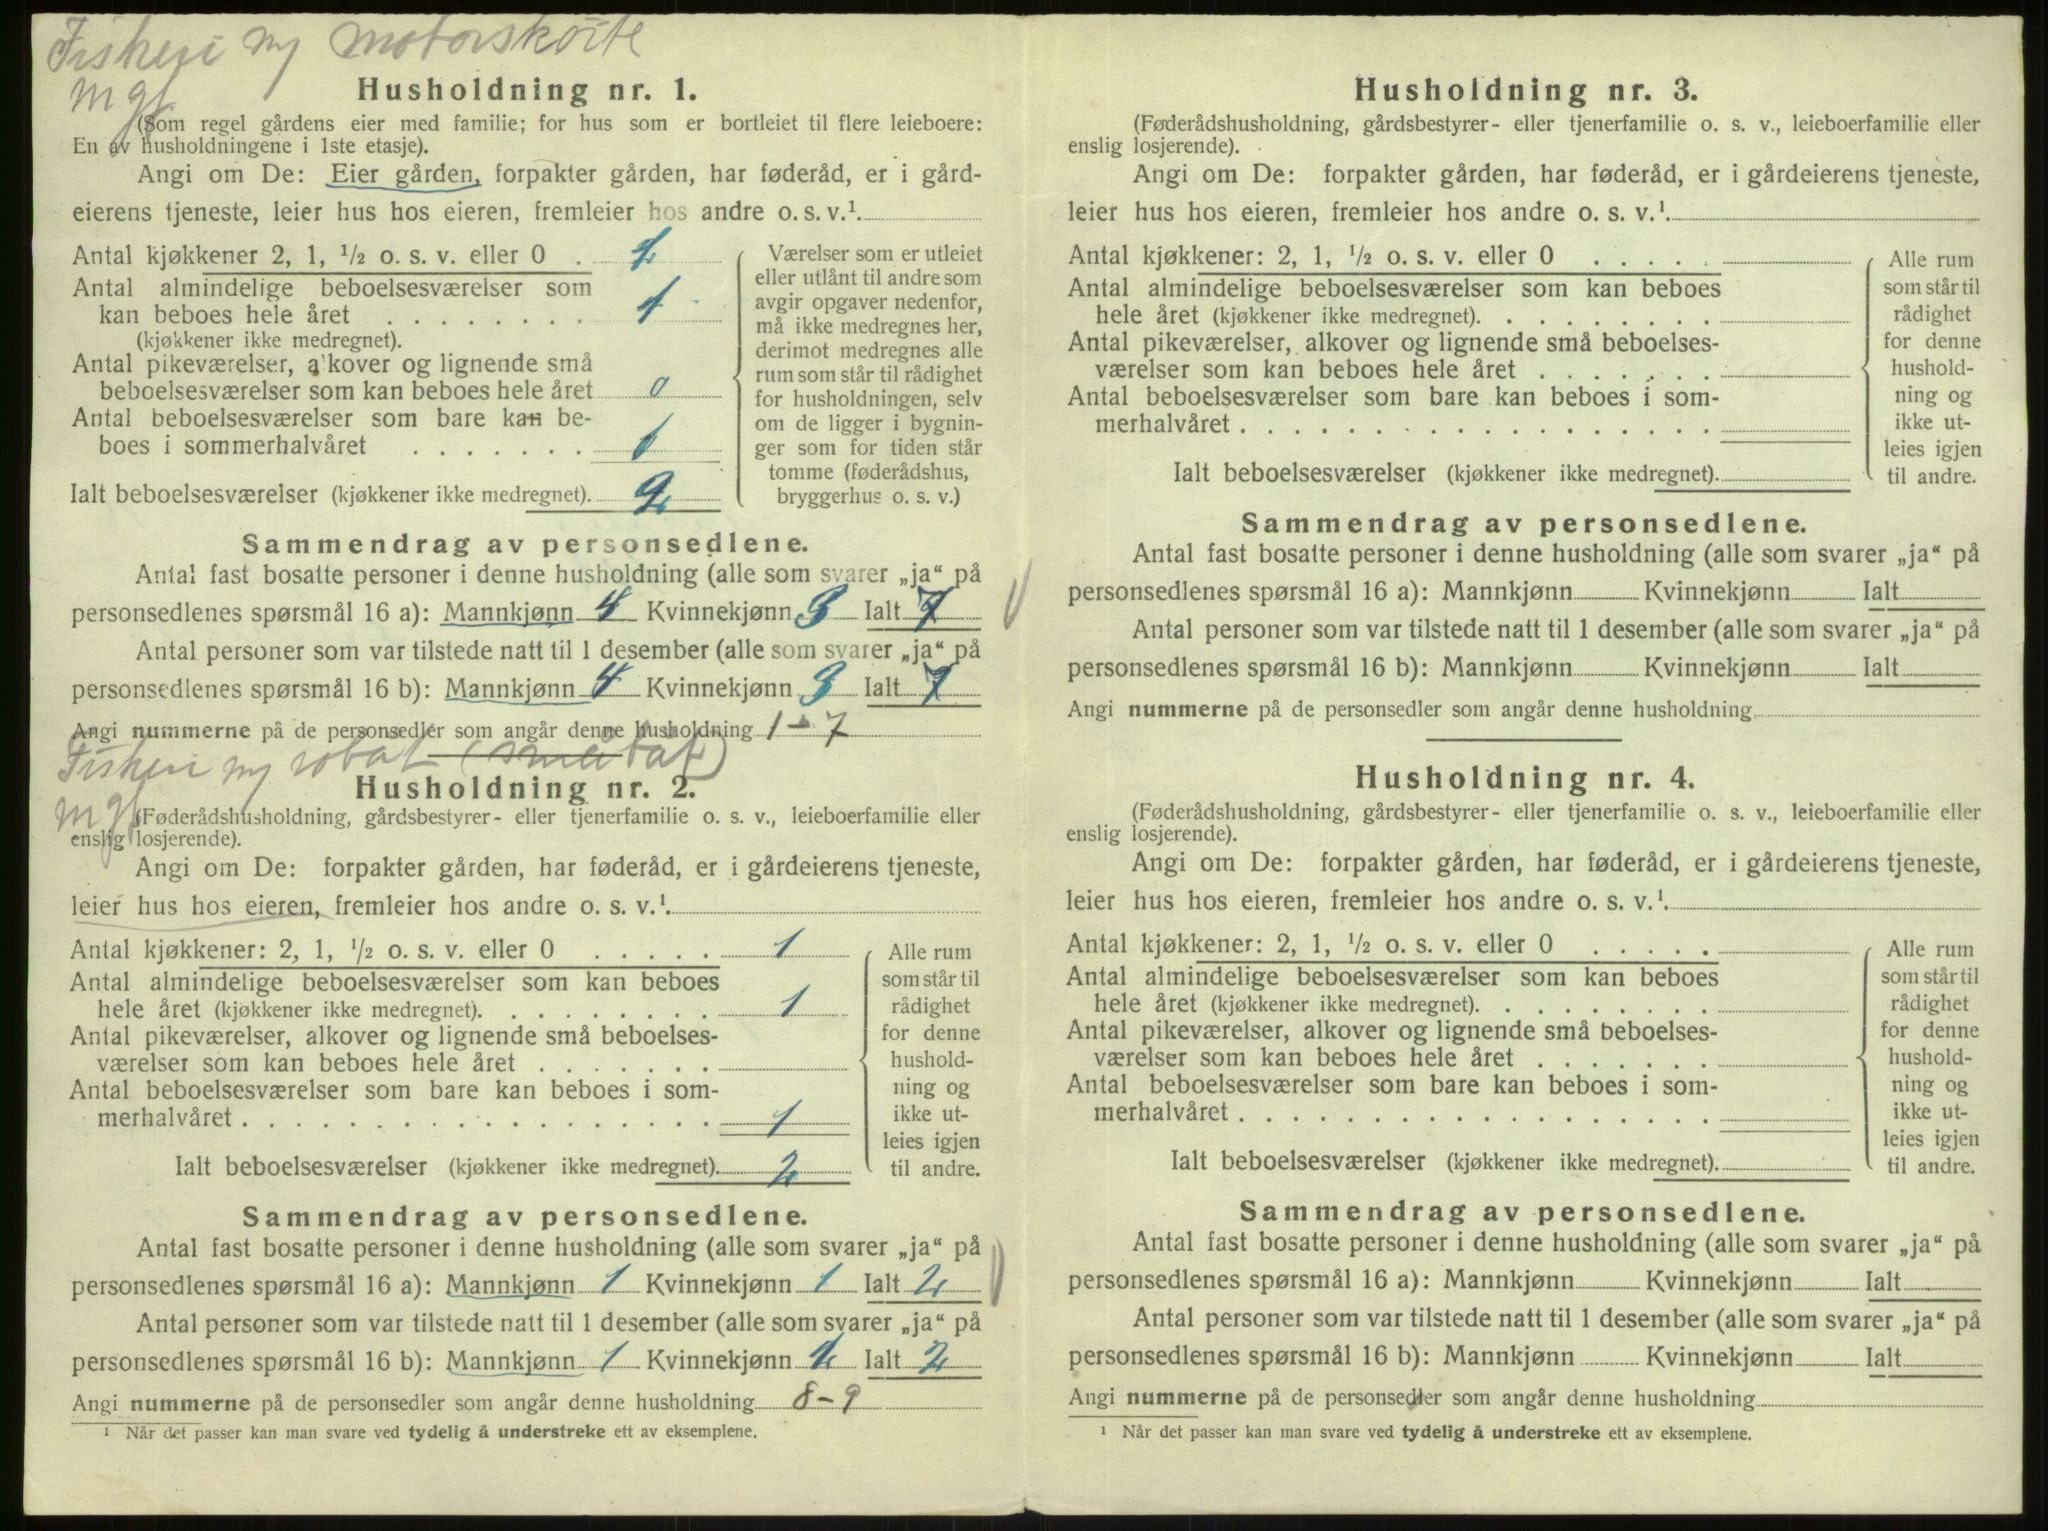 Fiskeri ny motorskøite
mgf
Husholdning nr. 1.
(Som regel gårdens eier med familie; for hus som er bortleiet til flere leieboere:
En av husholdningene i 1ste etasje).
Angi om De: Eier gården, forpakter gården, har føderåd, er i gård-
eierens tjeneste, leier hus hos eieren, fremleier hos andre o. s. v.¹.
Antal kjøkkener 2, 1, ½ o. s. v. eller 0 .
Antal almindelige beboelsesværelser som
kan beboes hele året . . . . . . . . 1
(kjøkkener ikke medregnet).
Antal pikeværelser, alkover og lignende små
beboelsesværelser som kan beboes hele året 0
Antal beboelsesværelser som bare kan be-
boes i sommerhalvåret . . . . . . . 1
Ialt beboelsesværelser (kjøkkener ikke medregnet). 2
Værelser som er utleiet
eller utlånt til andre som
avgir opgaver nedenfor,
må ikke medregnes her,
derimot medregnes alle
rum som står til rådighet
for husholdningen, selv
om de ligger i bygnin-
ger som for tiden står
tomme (føderådshus,
bryggerhus o. s. v.)
Sammendrag av personsedlene.
Antal fast bosatte personer i denne husholdning (alle som svarer „ja“ på
personsedlenes spørsmål 16 a): Mannkjønn 4 Kvinnekjønn 3 Ialt 7
Antal personer som var tilstede natt til 1 desember (alle som svarer „ja“ på
personsedlenes spørsmål 16 b): Mannkjønn 4 Kvinnekjønn 3 Ialt 7
Angi nummerne på de personsedler som angår denne husholdning 1-7
Fiskeri ny robåt (småbåt)
mgf
Husholdning nr. 2.
(Føderådshusholdning, gårdsbestyrer- eller tjenerfamilie o. s. v., leieboerfamilie eller
enslig losjerende).
Angi om De: forpakter gården, har føderåd, er i gårdeierens tjeneste,
leier hus hos eieren, fremleier hos andre o. s. v.¹.
Antal kjøkkener: 2, 1, ½ o. s. v. eller 0 . . . . . 1
Antal almindelige beboelsesværelser som kan beboes
hele året (kjøkkener ikke medregnet). . . . . . . . . 1
Antal pikeværelser, alkover og lignende små beboelses-
værelser som kan beboes hele året . . . . . . .
Antal beboelsesværelser som bare kan beboes i som-
merhalvåret . . . . . . . . . . . . . . . . . . 1
Ialt beboelsesværelser (kjøkkener ikke medregnet). 2
Alle rum
som står til
rådighet
for denne
hushold-
ning og
ikke ut-
leies igjen
til andre.
Sammendrag av personsedlene.
Antal fast bosatte personer i denne husholdning (alle som svarer „ja“ på
personsedlenes spørsmål 16 a): Mannkjønn 1 Kvinnekjønn 1 Ialt 2
Antal personer som var tilstede natt til 1 desember (alle som svarer „ja“ på
personsedlenes spørsmål 16 b): Mannkjønn 1 Kvinnekjønn 1 Ialt 2
Angi nummerne på de personsedler som angår denne husholdning 8-9
¹ Når det passer kan man svare ved tydelig å understreke ett av eksemplene.
Husholdning nr. 3.
(Føderådshusholdning, gårdsbestyrer- eller tjenerfamilie o. s. v., leieboerfamilie eller
enslig losjerende).
Angi om De: forpakter gården, har føderåd, er i gårdeierens tjeneste,
leier hus hos eieren, fremleier hos andre o. s. v.¹.
Antal kjøkkener: 2, 1, ½ o. s. v. eller 0 . . . . .
Antal almindelige beboelsesværelser som kan beboes
hele året (kjøkkener ikke medregnet). . . . . . . . .
Antal pikeværelser, alkover og lignende små beboelses-
værelser som kan beboes hele året . . . . . . .
Antal beboelsesværelser som bare kan beboes i som-
merhalvåret . . . . . . . . . . . . . . . . . .
Ialt beboelsesværelser (kjøkkener ikke medregnet).
Alle rum
som står til
rådighet
for denne
hushold-
ning og
ikke ut-
leies igjen
til andre.
Sammendrag av personsedlene.
Antal fast bosatte personer i denne husholdning (alle som svarer „ja“ på
personsedlenes spørsmål 16 a): Mannkjønn Kvinnekjønn Ialt
Antal personer som var tilstede natt til 1 desember (alle som svarer „ja“ på
personsedlenes spørsmål 16 b): Mannkjønn Kvinnekjønn Ialt
Angi nummerne på de personsedler som angår denne husholdning
Husholdning nr. 4.
(Føderådshusholdning, gårdsbestyrer- eller tjenerfamilie o. s. v., leieboerfamilie eller
enslig losjerende).
Angi om De: forpakter gården, har føderåd, er i gårdeierens tjeneste,
leier hus hos eieren, fremleier hos andre o. s. v.¹.
Antal kjøkkener: 2, 1, ½ o. s. v. eller 0 . . . . .
Antal almindelige beboelsesværelser som kan beboes
hele året (kjøkkener ikke medregnet). . . . . . . . .
Antal pikeværelser, alkover og lignende små beboelses-
værelser som kan beboes hele året . . . . . . .
Antal beboelsesværelser som bare kan beboes i som-
merhalvåret . . . . . . . . . . . . . . . . . .
Ialt beboelsesværelser (kjøkkener ikke medregnet).
Alle rum
som står til
rådighet
for denne
hushold-
ning og
ikke ut-
leies igjen
til andre.
Sammendrag av personsedlene.
Antal fast bosatte personer i denne husholdning (alle som svarer „ja“ på
personsedlenes spørsmål 16 a): Mannkjønn Kvinnekjønn Ialt
Antal personer som var tilstede natt til 1 desember (alle som svarer „ja“ på
personsedlenes spørsmål 16 b): Mannkjønn Kvinnekjønn Ialt
Angi nummerne på de personsedler som angår denne husholdning
¹ Når det passer kan man svare ved tydelig å understreke ett av eksemplene.